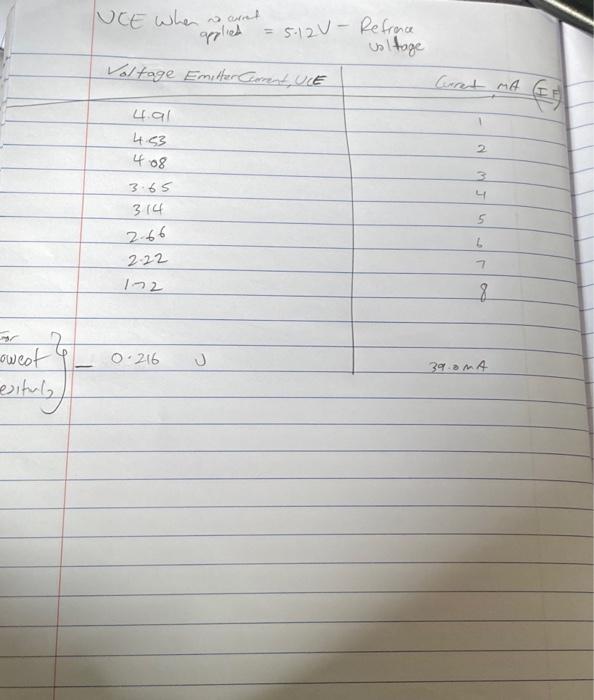 VCE When no current applied = 5.12V - Refrence voltage
Voltage Emitter Current, VCE Current, mA (IF)
4.91 1
4.53 2
4.08 3
3.65 4
3.14 5
2.66 6
2.22 7
1.72 8
For
owest
- 0.216 V 39.0 mA